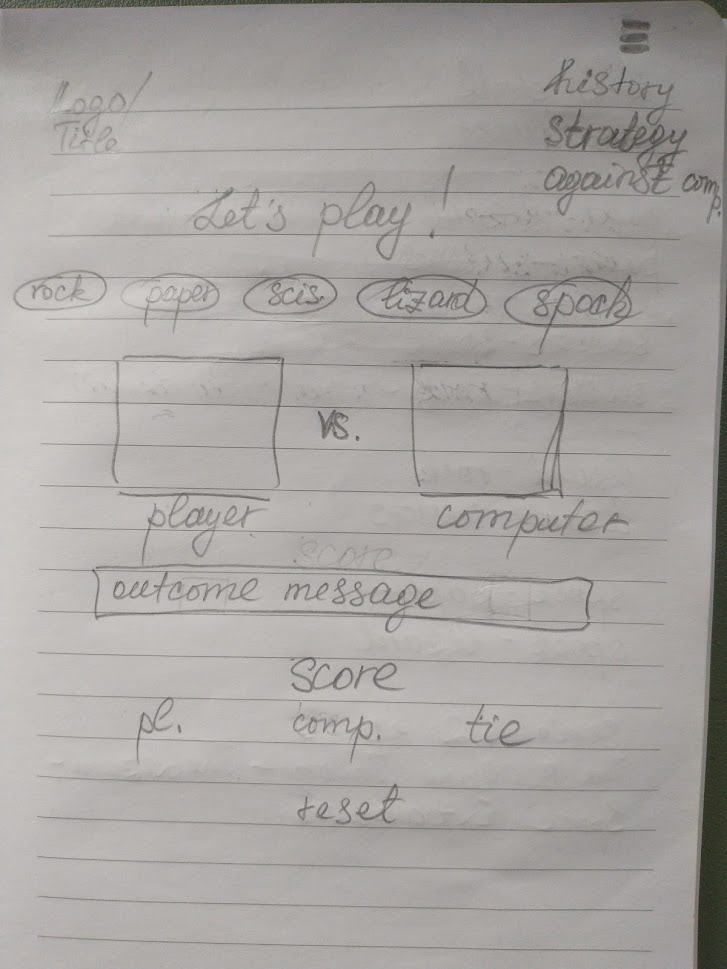 Logo/
Title
history
strategy
against comp.
Let's play!
rock paper scis. lizard spock
vs.
player computer
score
outcome message
score
pl. comp. tie
reset